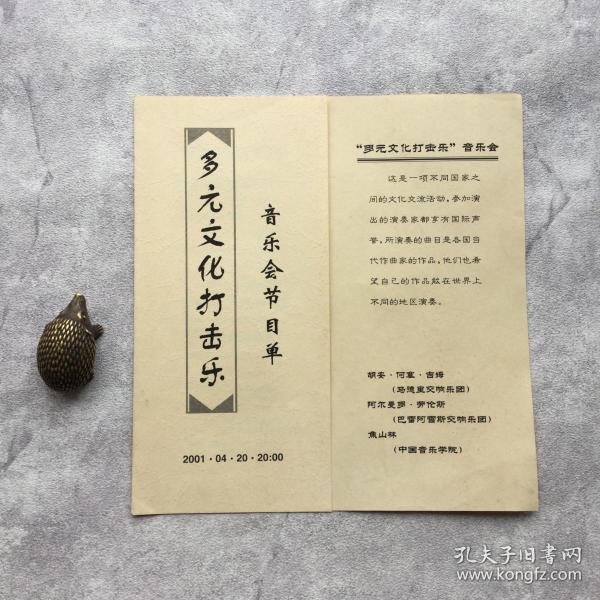 多元文化打击乐
音乐会节目单
2001·04·20·20:00
“多元文化打击乐”音乐会
这是一项不同国家之
间的文化交流活动，参加演
出的演奏家都享有国际声
誉，所演奏的曲目是各国当
代作曲家的作品，他们也希
望自己的作品能在世界上
不同的地区演奏。
胡安·何塞·吉姆
（马德里交响乐团）
阿尔曼多·劳伦斯
（巴雷阿雷斯交响乐团）
焦山林
（中国音乐学院）
孔夫子旧书网
www.kongfz.com